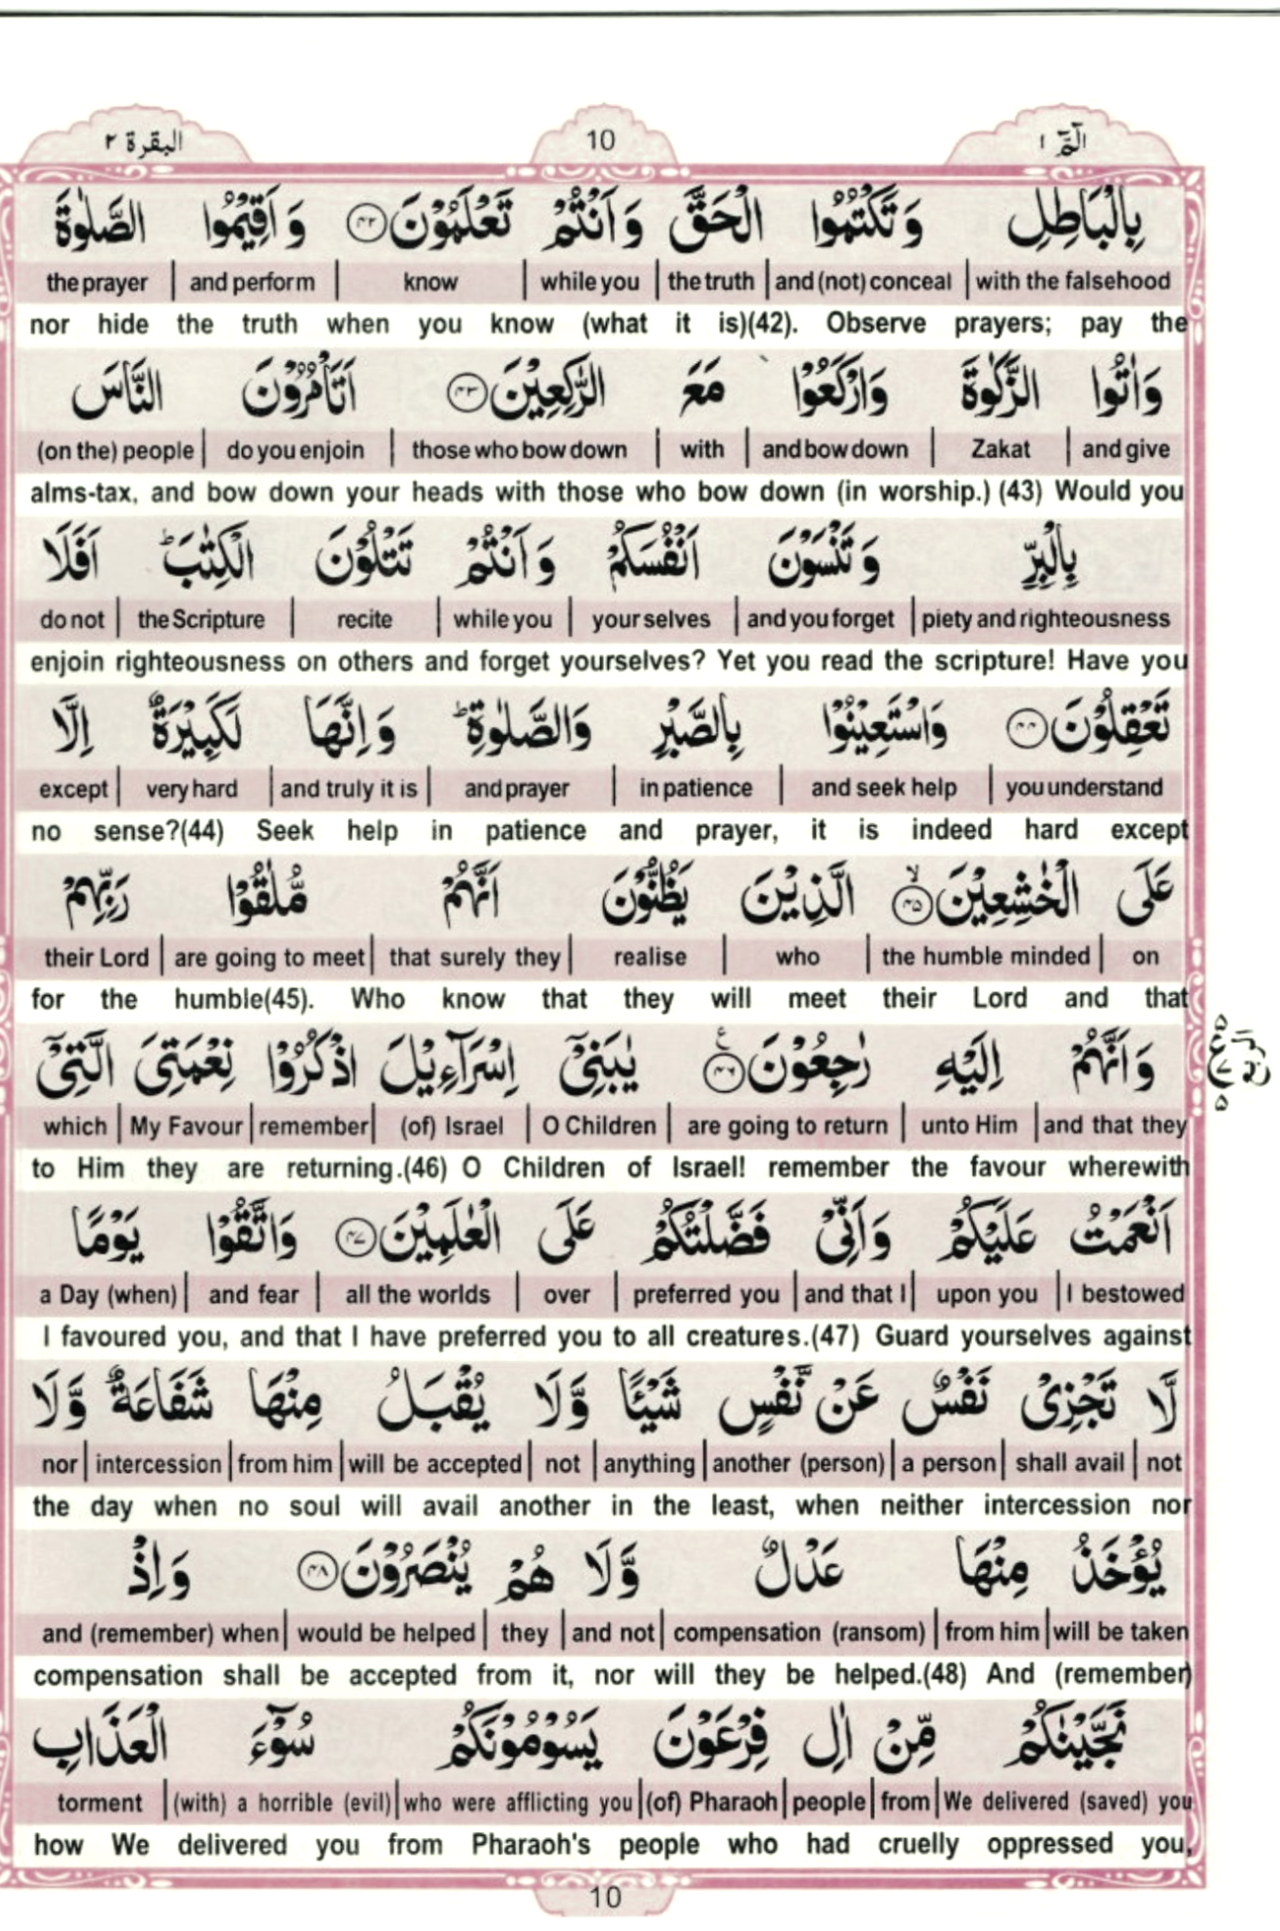 البقرة ٢
10
الٓمّٓ ١
بِالْبَاطِلِ وَتَكْتُمُوا الْحَقَّ وَاَنْتُمْ تَعْلَمُوْنَ ﴿۴۲﴾ وَاَقِيْمُوا الصَّلٰوةَ
the prayer | and perform | know | while you | the truth | and (not) conceal | with the falsehood
nor hide the truth when you know (what it is)(42). Observe prayers; pay the
وَاٰتُوا الزَّكٰوةَ وَارْكَعُوْا مَعَ الرّٰكِعِيْنَ ﴿۴۳﴾ اَتَاْمُرُوْنَ النَّاسَ
(on the) people | do you enjoin | those who bow down | with | and bow down | Zakat | and give
alms-tax, and bow down your heads with those who bow down (in worship.) (43) Would you
بِالْبِرِّ وَتَنْسَوْنَ اَنْفُسَكُمْ وَاَنْتُمْ تَتْلُوْنَ الْكِتٰبَ ؕ اَفَلَا
do not | the Scripture | recite | while you | your selves | and you forget | piety and righteousness
enjoin righteousness on others and forget yourselves? Yet you read the scripture! Have you
تَعْقِلُوْنَ ﴿۴۴﴾ وَاسْتَعِيْنُوْا بِالصَّبْرِ وَالصَّلٰوةِ ؕ وَاِنَّهَا لَكَبِيْرَةٌ اِلَّا
except | very hard | and truly it is | and prayer | in patience | and seek help | you understand
no sense?(44) Seek help in patience and prayer, it is indeed hard except
عَلَى الْخٰشِعِيْنَ ۙ﴿۴۵﴾ الَّذِيْنَ يَظُنُّوْنَ اَنَّهُمْ مُّلٰقُوْا رَبِّهِمْ
their Lord | are going to meet | that surely they | realise | who | the humble minded | on
for the humble(45). Who know that they will meet their Lord and that
وَاَنَّهُمْ اِلَيْهِ رٰجِعُوْنَ ﴿۴۶﴾ۧ يٰبَنِيْٓ اِسْرَآءِيْلَ اذْكُرُوْا نِعْمَتِيَ الَّتِيْٓ
which | My Favour | remember | (of) Israel | O Children | are going to return | unto Him | and that they
to Him they are returning.(46) O Children of Israel! remember the favour wherewith
اَنْعَمْتُ عَلَيْكُمْ وَاَنِّيْ فَضَّلْتُكُمْ عَلَى الْعٰلَمِيْنَ ﴿۴۷﴾ وَاتَّقُوْا يَوْمًا
a Day (when) | and fear | all the worlds | over | preferred you | and that I | upon you | I bestowed
I favoured you, and that I have preferred you to all creatures.(47) Guard yourselves against
لَّا تَجْزِيْ نَفْسٌ عَنْ نَّفْسٍ شَيْـًٔا وَّلَا يُقْبَلُ مِنْهَا شَفَاعَةٌ وَّلَا
nor | intercession | from him | will be accepted | not | anything | another (person) | a person | shall avail | not
the day when no soul will avail another in the least, when neither intercession nor
يُؤْخَذُ مِنْهَا عَدْلٌ وَّلَا هُمْ يُنْصَرُوْنَ ﴿۴۸﴾ وَاِذْ
and (remember) when | would be helped | they | and not | compensation (ransom) | from him | will be taken
compensation shall be accepted from it, nor will they be helped.(48) And (remember)
نَجَّيْنٰكُمْ مِّنْ اٰلِ فِرْعَوْنَ يَسُوْمُوْنَكُمْ سُوْٓءَ الْعَذَابِ
torment | (with) a horrible (evil) | who were afflicting you | (of) Pharaoh | people | from | We delivered (saved) you
how We delivered you from Pharaoh's people who had cruelly oppressed you,
10